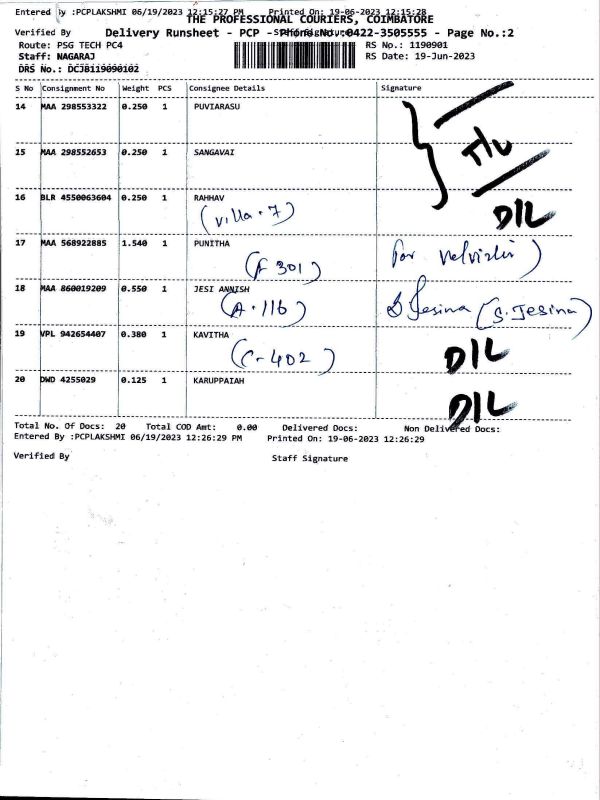 Entered By :PCPLAKSHMI 06/19/2023 12:15:27 PM Printed On: 19-06-2023 12:15:28
THE PROFESSIONAL COURIERS, COIMBATORE
Verified By Staff Signature
Delivery Runsheet - PCP - Phone No.:0422-3505555 - Page No.:2
Route: PSG TECH PC4 RS No.: 1190901
Staff: NAGARAJ RS Date: 19-Jun-2023
DRS No.: DCJB119090102
S No Consignment No Weight PCS Consignee Details Signature
14 MAA 298553322 0.250 1 PUVIARASU
15 MAA 298552653 0.250 1 SANGAVAI
16 BLR 4550063604 0.250 1 RAHHAV D/L
(villa. 7)
17 MAA 568922885 1.540 1 PUNITHA
(F 301)
18 MAA 860019209 0.550 1 JESI ANNISH
(A. 116) Jesina (S. Jesina)
19 VPL 942654407 0.380 1 KAVITHA
(C-402) D/L
20 DWD 4255029 0.125 1 KARUPPAIAH
D/L
Total No. Of Docs: 20 Total COD Amt: 0.00 Delivered Docs: Non Delivered Docs:
Entered By :PCPLAKSHMI 06/19/2023 12:26:29 PM Printed On: 19-06-2023 12:26:29
Verified By Staff Signature